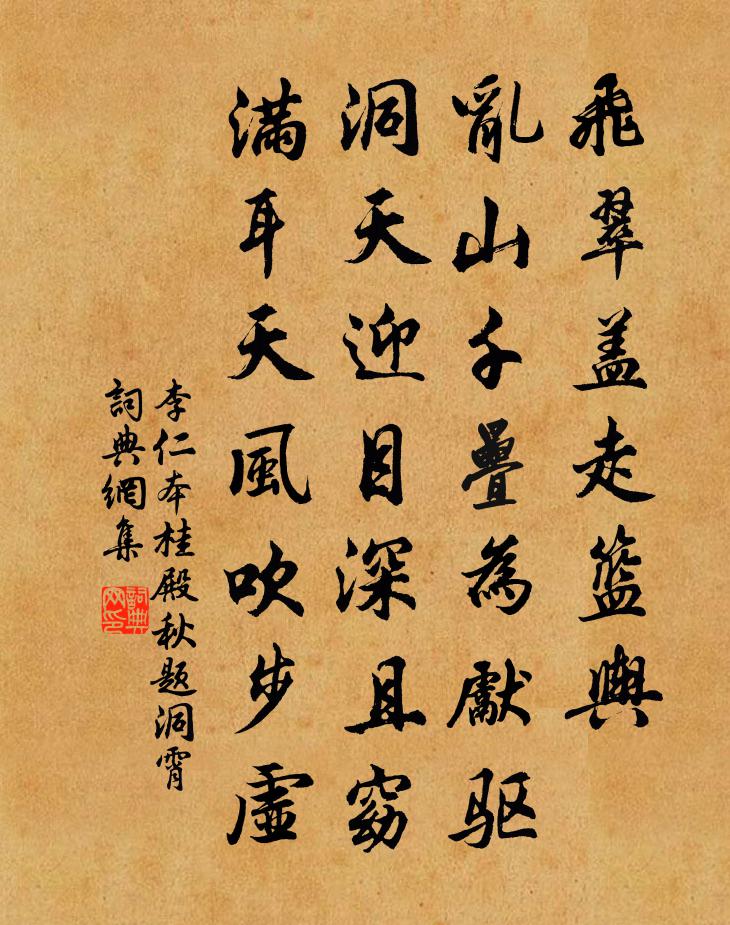 飛翠盖走籃輿
亂山千疊為獻驱
洞天迎目深且窈
滿耳天風吹步虛
李仁本桂殿秋題洞霄
詞典網集
詞典网印